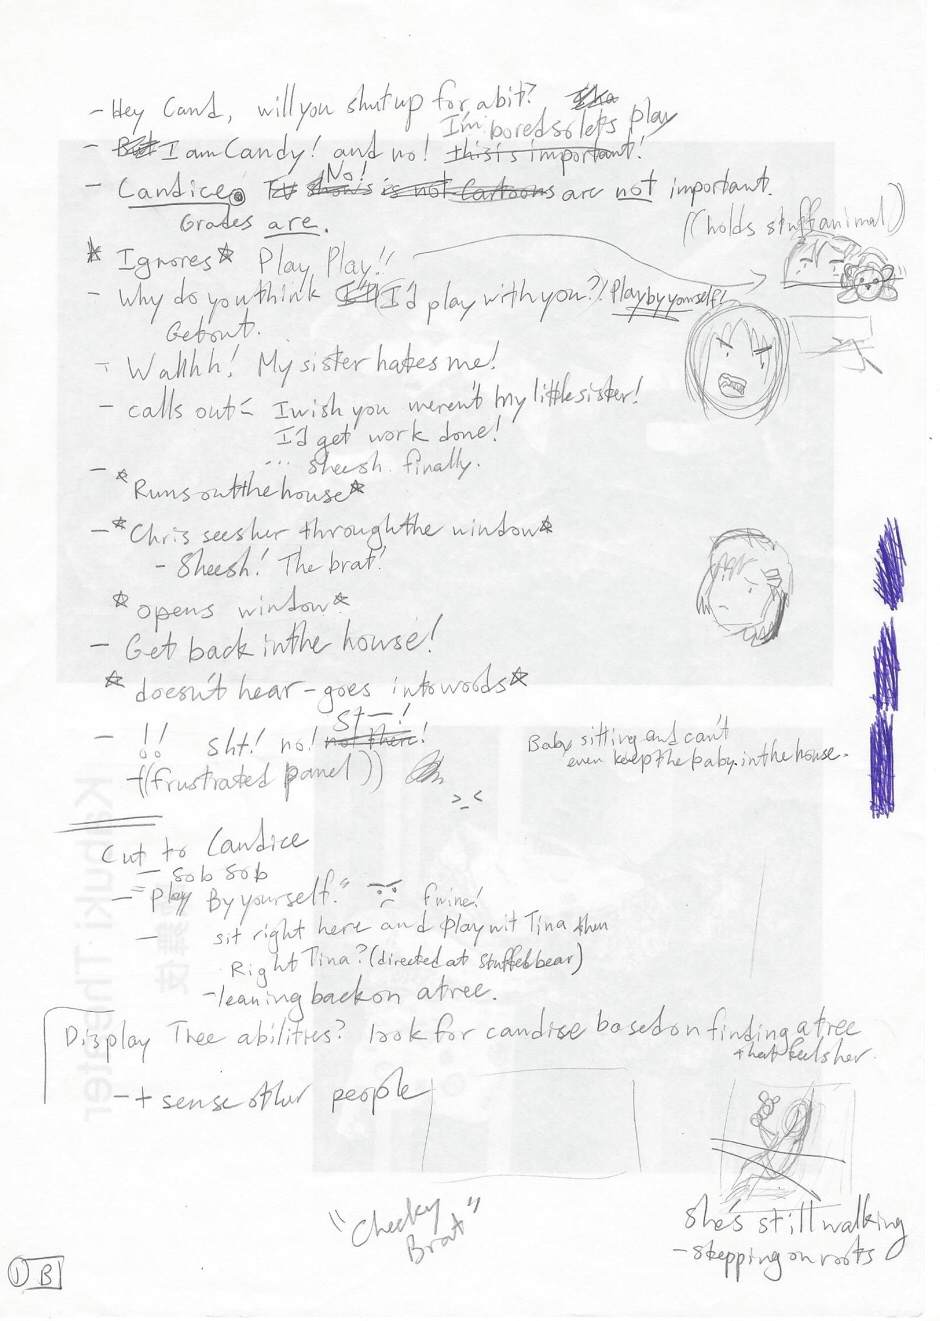 - Hey Cand, will you shut up for a bit?
I'm bored so lets play
- But I am Candy! and no! this is important!
- Candice. No! TV shows is not Cartoons are not important.
Grades are.
((holds stuff animal))
* Ignores * Play Play!!
- Why do you think I'd play with you?! Play by yourself!
Get out.
- Wahhh! My sister hates me!
- calls out - I wish you weren't my little sister!
I'd get work done!
... sheesh. finally.
- *Runs out the house*
- *Chris sees her through the window*
- Sheesh! The brat!
*opens window*
- Get back in the house!
* doesn't hear - goes into woods*
St—!
- !! sht! no! not there!
Baby sitting and can't
even keep the baby in the house.
- ((frustrated panel))
>_<
Cut to Candice
- sob sob
- "Play By yourself." fwine!
- sit right here and play wit Tina then
Right Tina? (directed at stuffed bear)
- leaning back on a tree.
Display Thee abilities? look for candise based on finding a tree
that feels her.
- + sense other people
"Cheeky
Brat"
She's still walking
- stepping on roots
1 B
Kabuki Theater